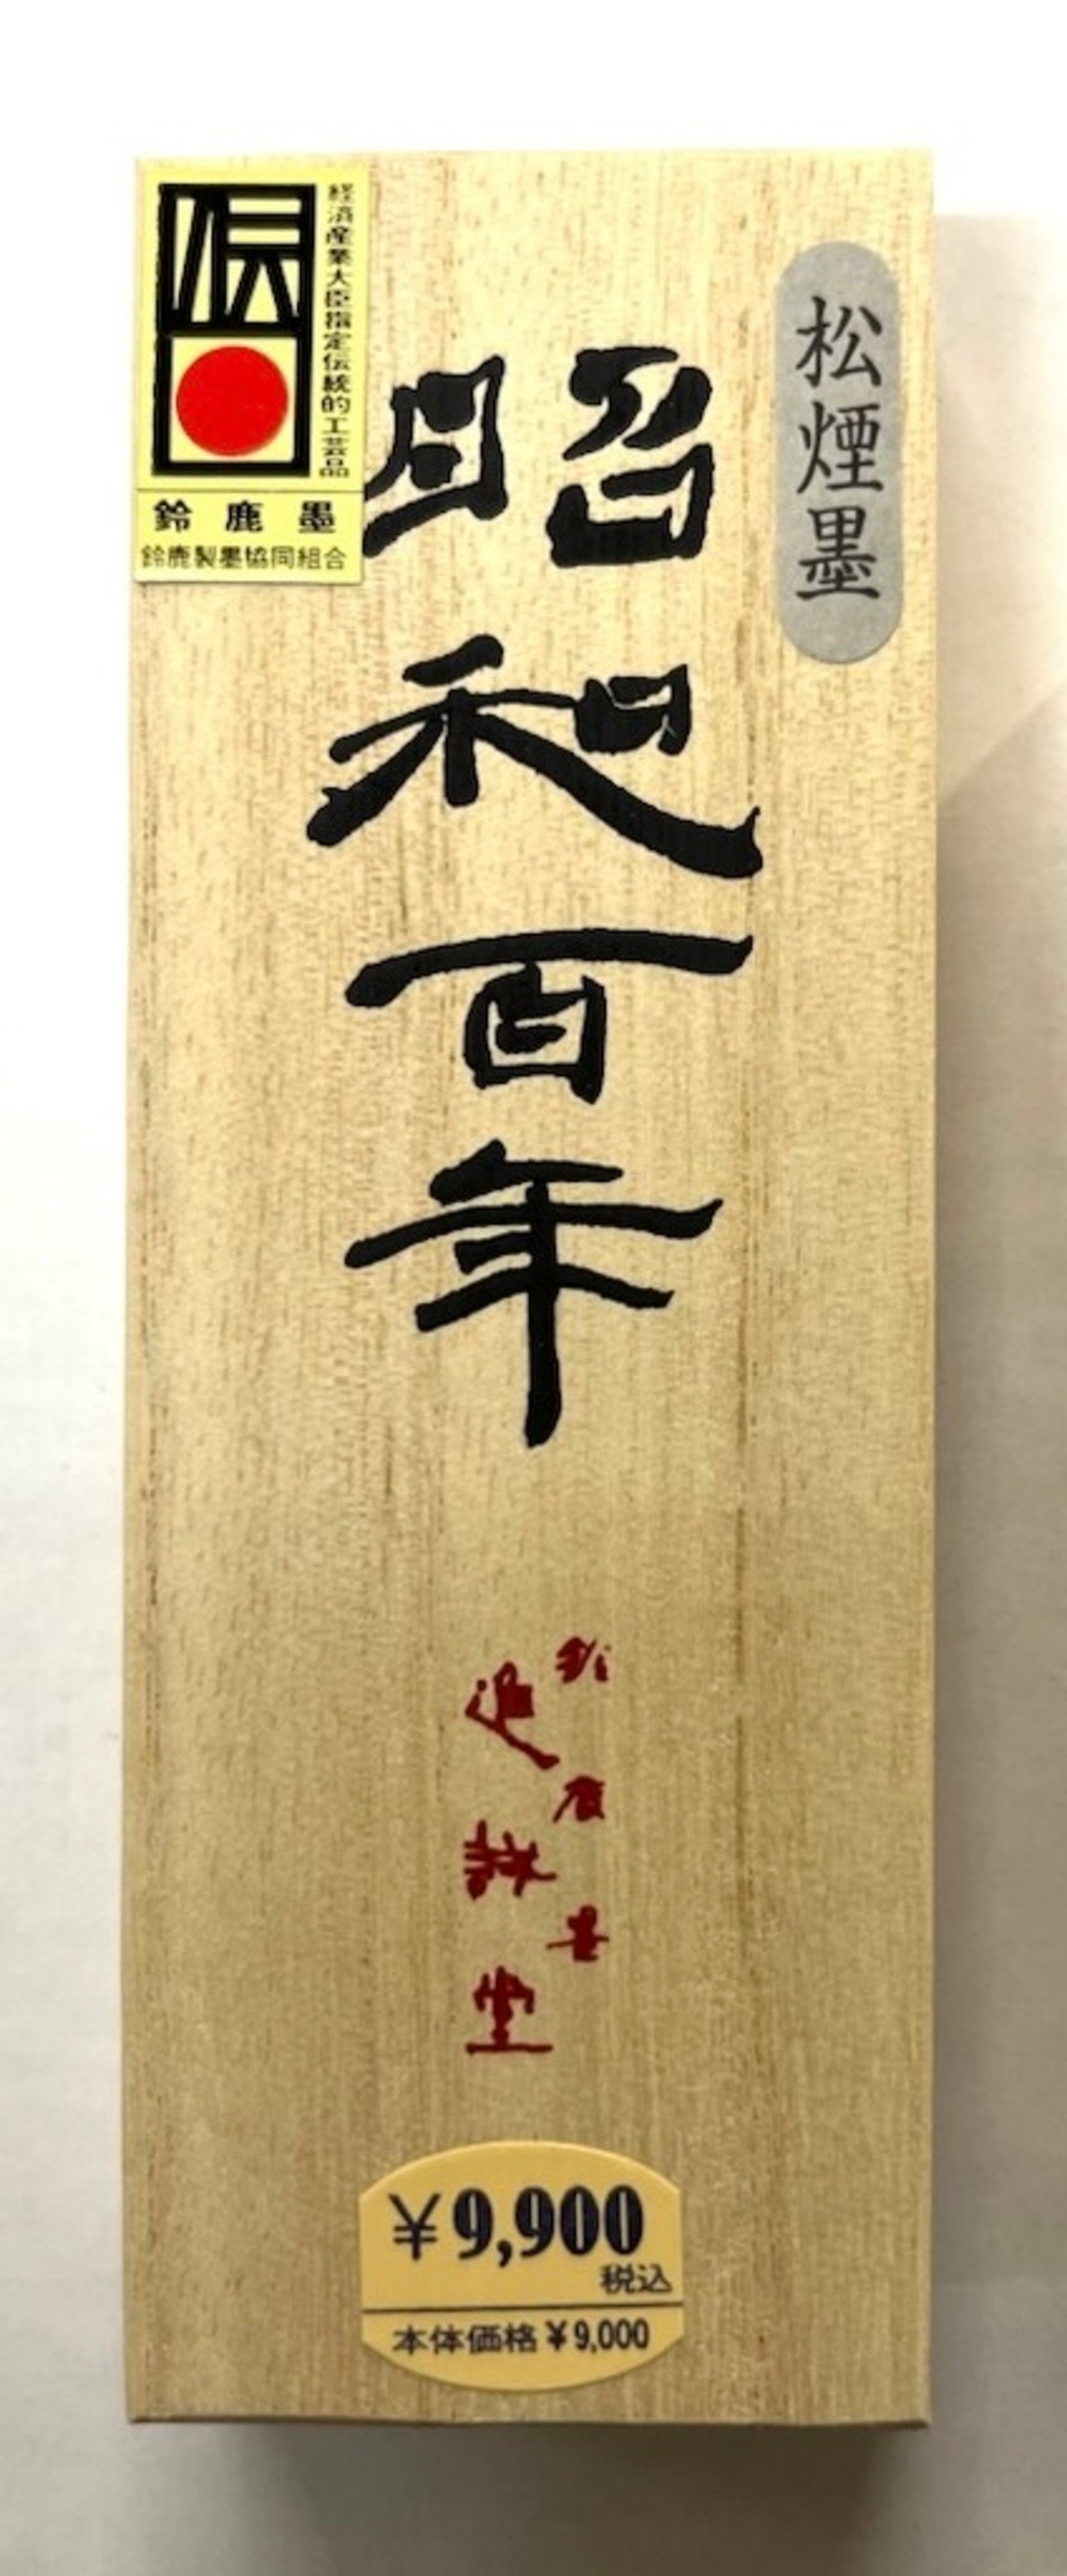 伝
経済産業大臣指定伝統的工芸品
鈴鹿墨
鈴鹿製墨協同組合
松煙墨
昭和百年
鈴鹿墨
進誠堂
¥9,900
税込
本体価格¥9,000